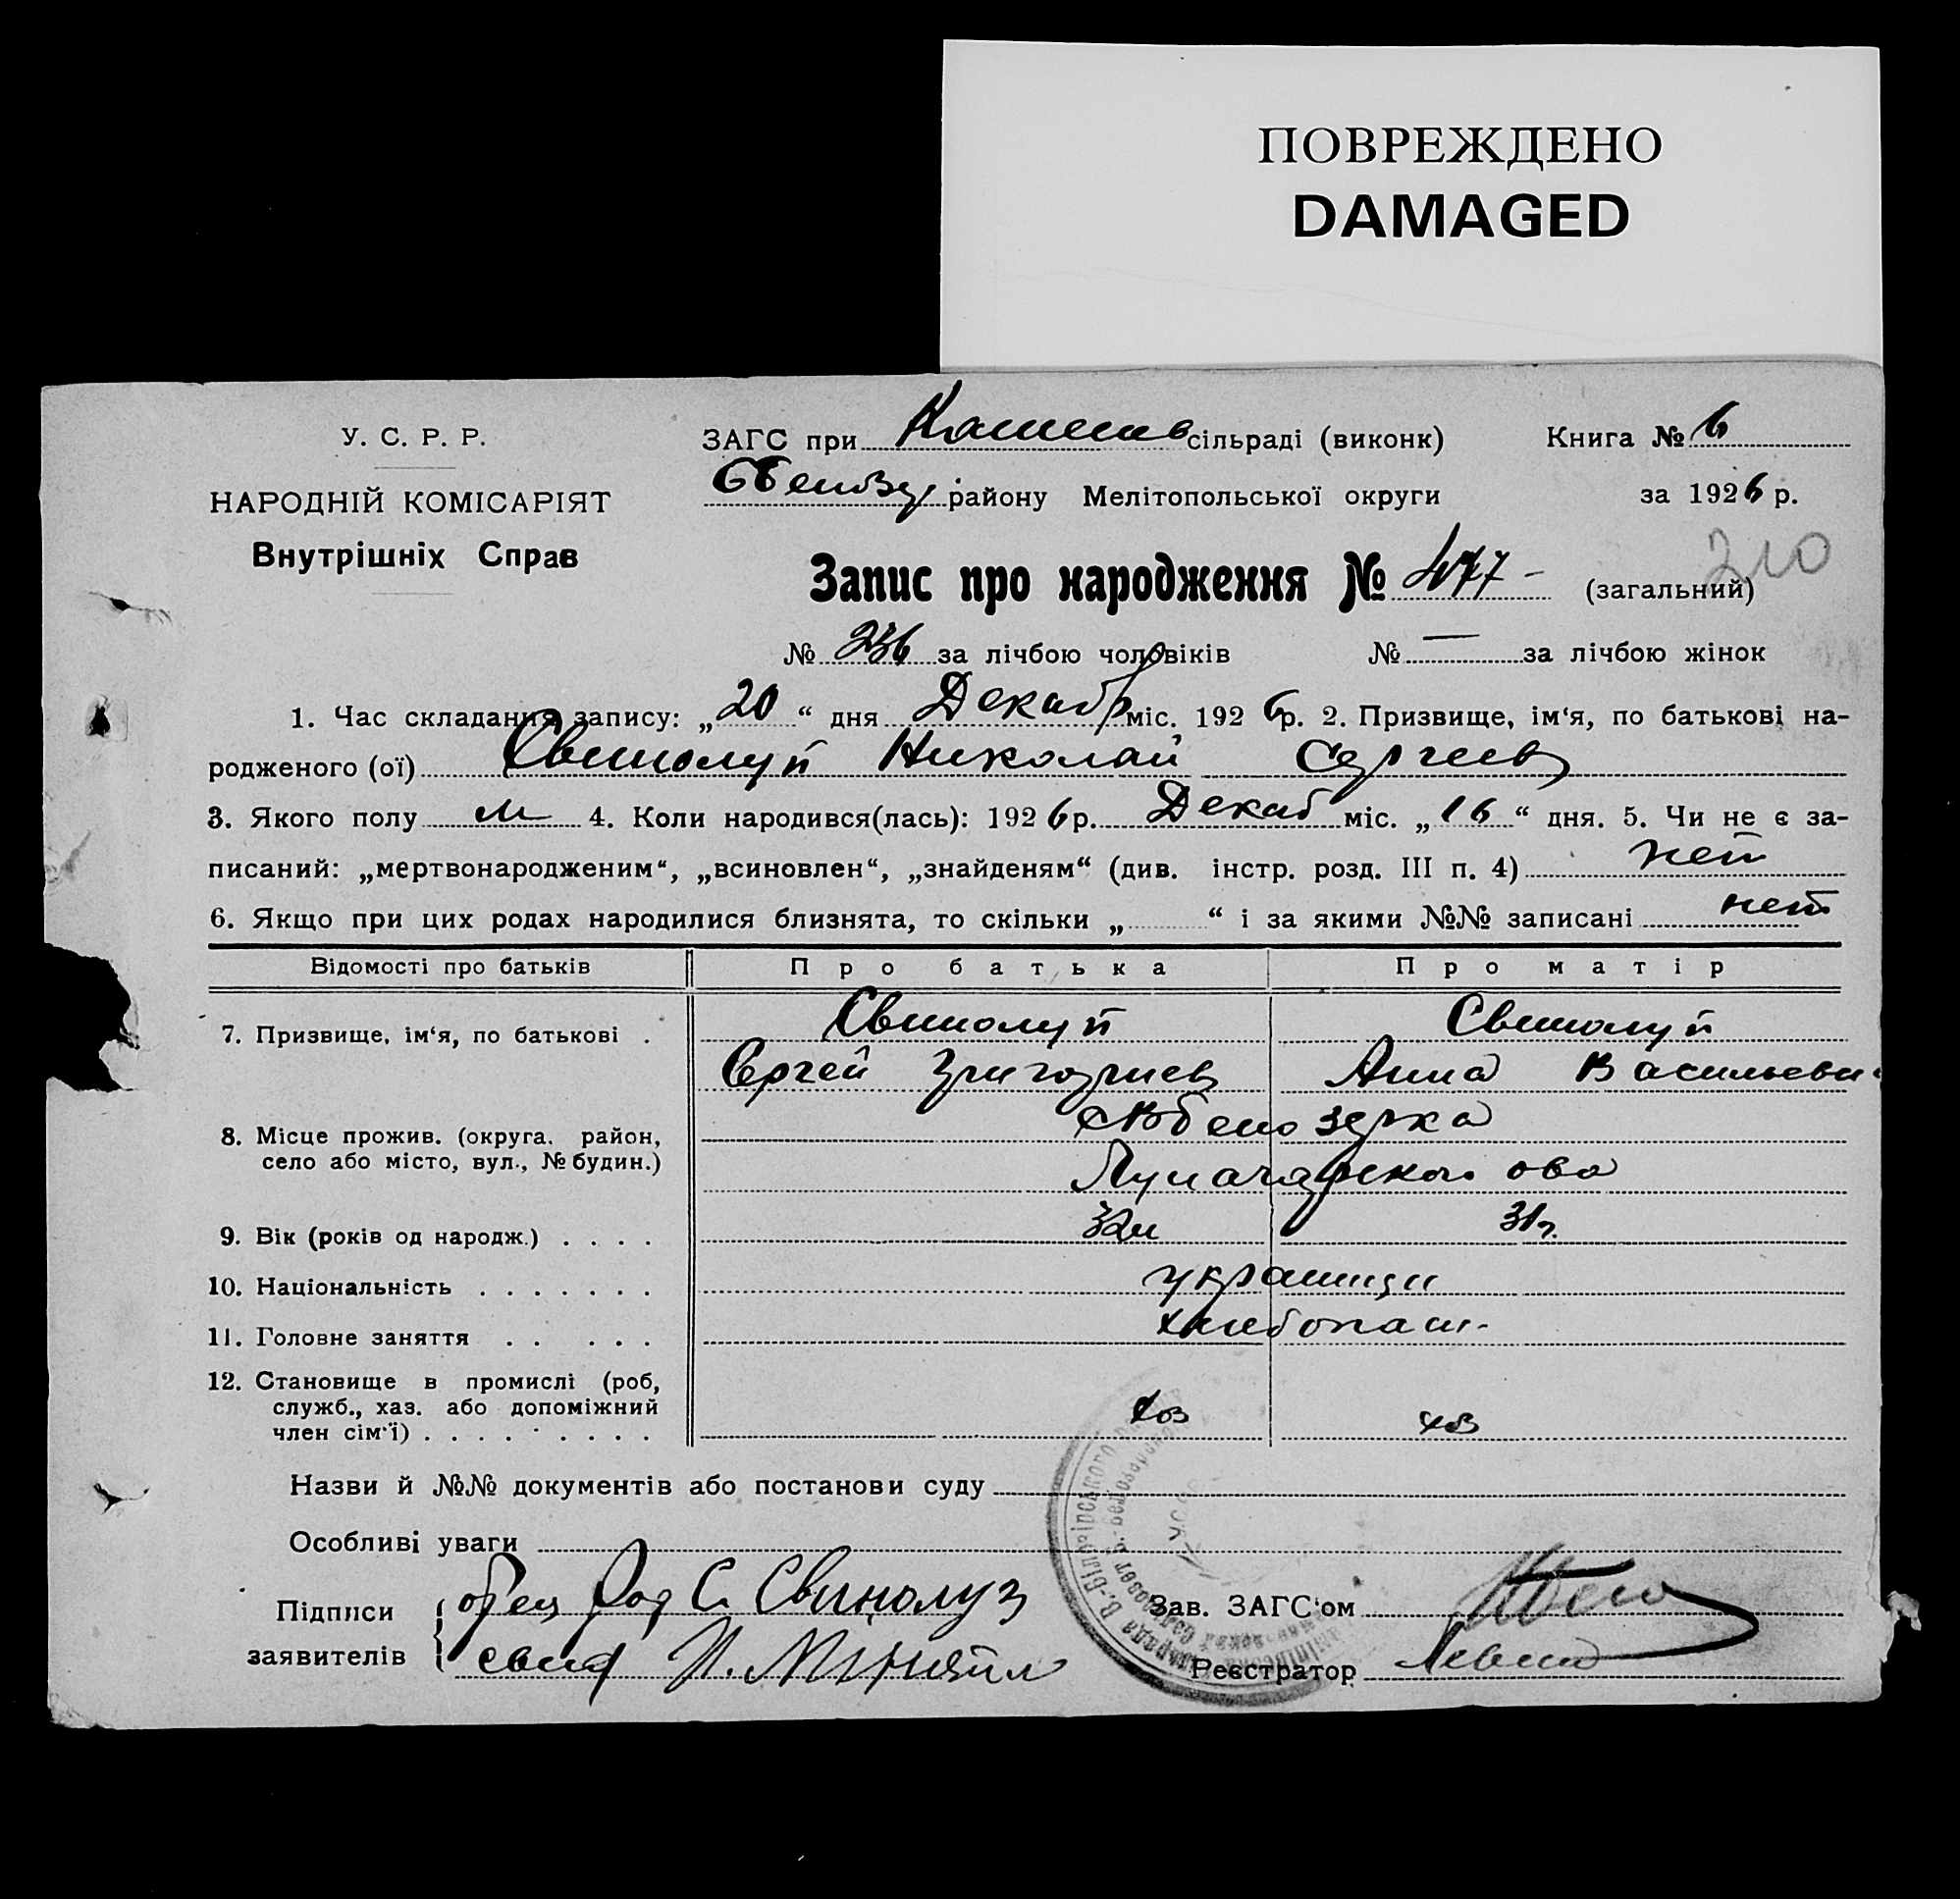 ПОВРЕЖДЕНО
DAMAGED
У. С. Р. Р.
НАРОДНІЙ КОМІСАРІЯТ
Внутрішніх Справ
ЗАГС при сільраді (виконк) Книга № 6
району Мелітопольської округи за 1926 р.
210
Запис про народження № 477 - (загальний)
№ 236 за лічбою чоловіків № — за лічбою жінок
1. Час складання запису: „20“ дня Декабр міс. 1926 р. 2. Призвище, ім‘я, по батькові на-
родженого (ої) Свинолуп Николай Сергеев
3. Якого полу м 4. Коли народився(лась): 1926 р. Декаб міс. „16“ дня. 5. Чи не є за-
писаний: „мертвонародженим“, „всиновлен“, „знайденям“ (див. інстр. розд. III п. 4) нет
6. Якщо при цих родах народилися близнята, то скільки „ “ і за якими №№ записані нет
Відомості про батьків Про батька Про матір
7. Призвище, ім‘я, по батькові . Свинолуп Свинолуп
Сергей Григориев Анна Васильевн
8. Місце прожив. (округа, район,
село або місто, вул., № будин.)
9. Вік (років од народж.) . . . . 32 31 г.
10. Національність . . . . . . . украинци
11. Головне заняття . . . . . хлебопаш-
12. Становище в промислі (роб,
служб., хаз. або допоміжний
член сім‘ї) . . . . . . . . . хоз хоз
Назви й №№ документів або постанови суду
Особливі уваги
Підписи
заявителів
отец С. Свинолуп
Зав. ЗАГС‘ом
Реєстратор